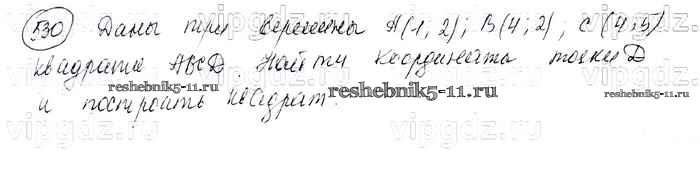 530 Даны три вершины A(1; 2); B(4; 2); C(4; 5)
квадрата ABCD. Найти координаты точки D
и построить квадрат.
reshebnik5-11.ru
reshebnik5-11.ru
vipgdz.com
vipgdz.com